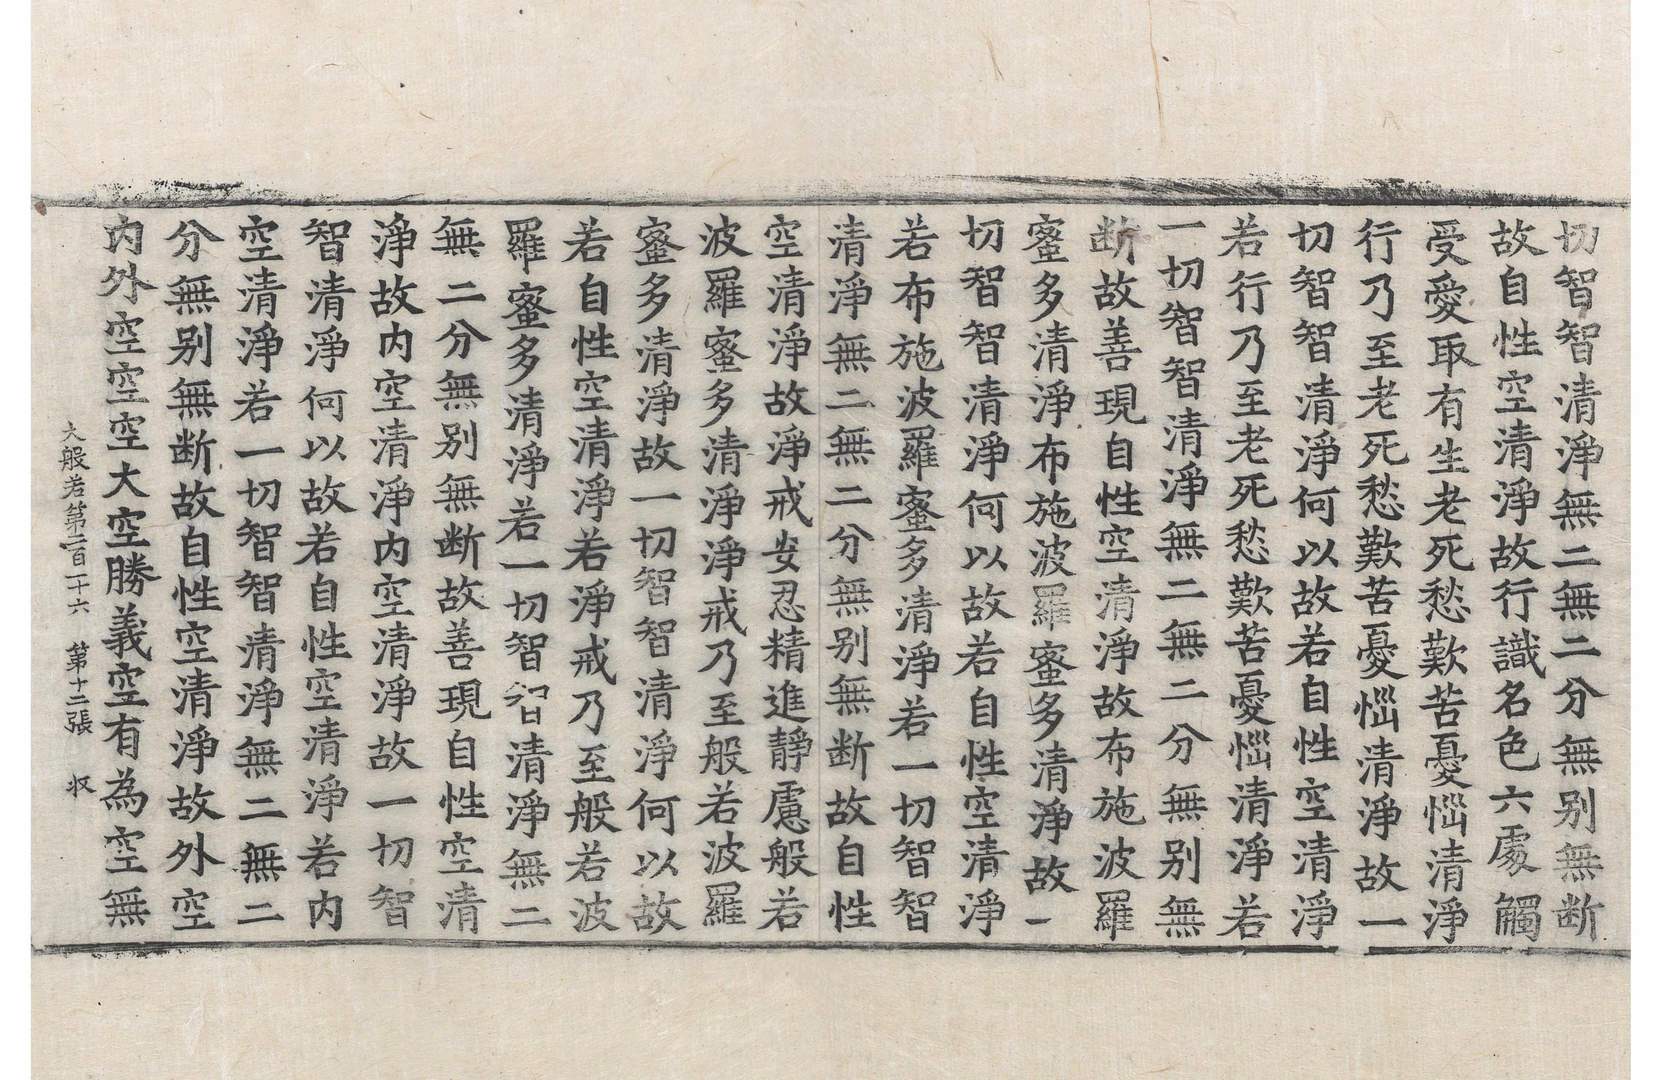 切智智清淨無二無二分無別無断
故自性空清淨故行識名色六處觸
受愛取有生老死愁歎苦憂惱清淨
行乃至老死愁歎苦憂惱清淨故一
切智智清淨何以故若自性空清淨
若行乃至老死愁歎苦憂惱清淨若
一切智智清淨無二無二分無別無
断故善現自性空清淨故布施波羅
蜜多清淨布施波羅蜜多清淨故一
切智智清淨何以故若自性空清淨
若布施波羅蜜多清淨若一切智智
清淨無二無二分無別無断故自性
空清淨故淨戒安忍精進靜慮般若
波羅蜜多清淨淨戒乃至般若波羅
蜜多清淨故一切智智清淨何以故
若自性空清淨若淨戒乃至般若波
羅蜜多清淨若一切智智清淨無二
無二分無別無断故善現自性空清
淨故内空清淨内空清淨故一切智
智清淨何以故若自性空清淨若内
空清淨若一切智智清淨無二無二
分無別無断故自性空清淨故外空
内外空空空大空勝義空有為空無
大般若第二百一十六 第十二張 収